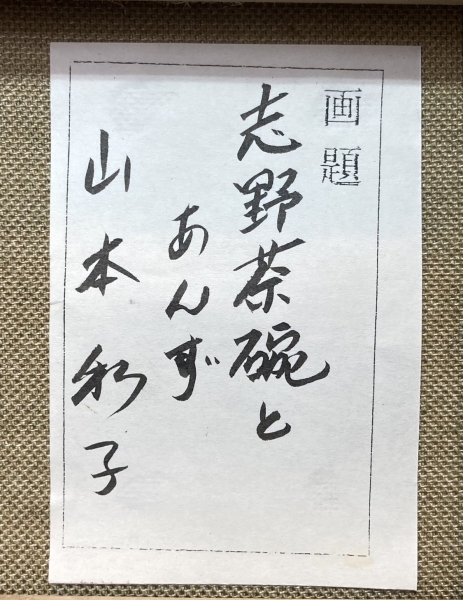 画題
志野茶碗と
あんず
山本和子